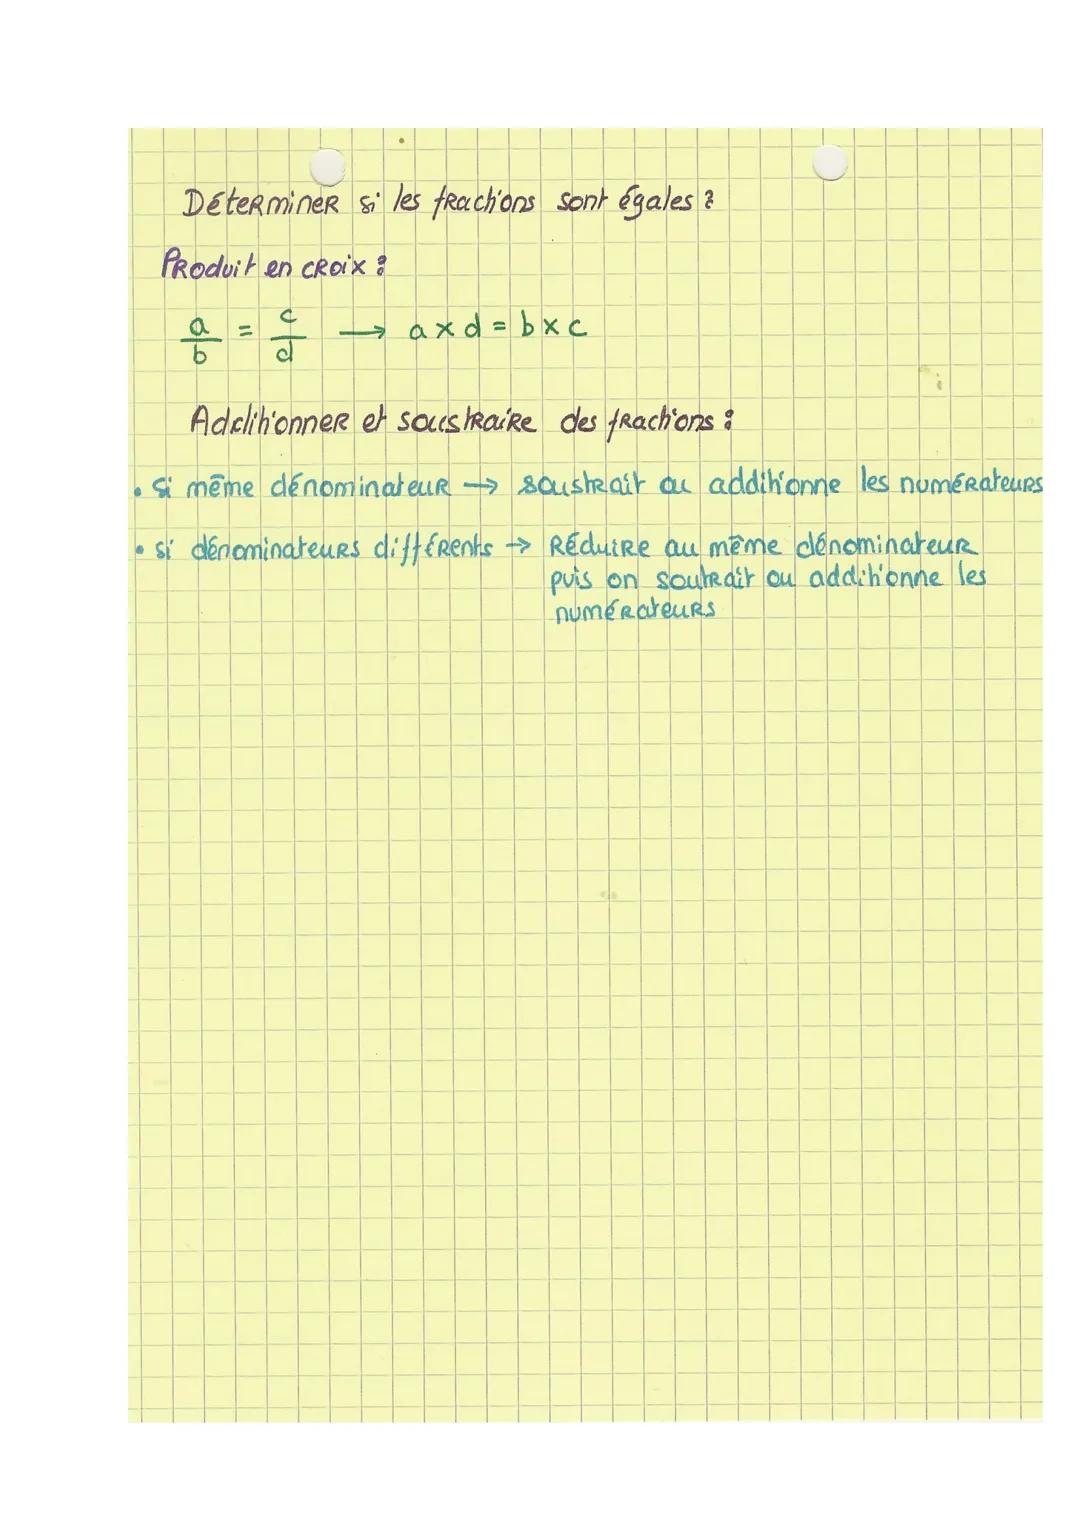 Déterminer si les fractions sont égales :
Produit en croix :
a/b = c/d → a x d = b x c
Additionner et soustraire des fractions :
• si même dénominateur → soustrait ou additionne les numérateurs
• si dénominateurs différents → Réduire au même dénominateur
puis on soutrait ou additionne les
numérateurs